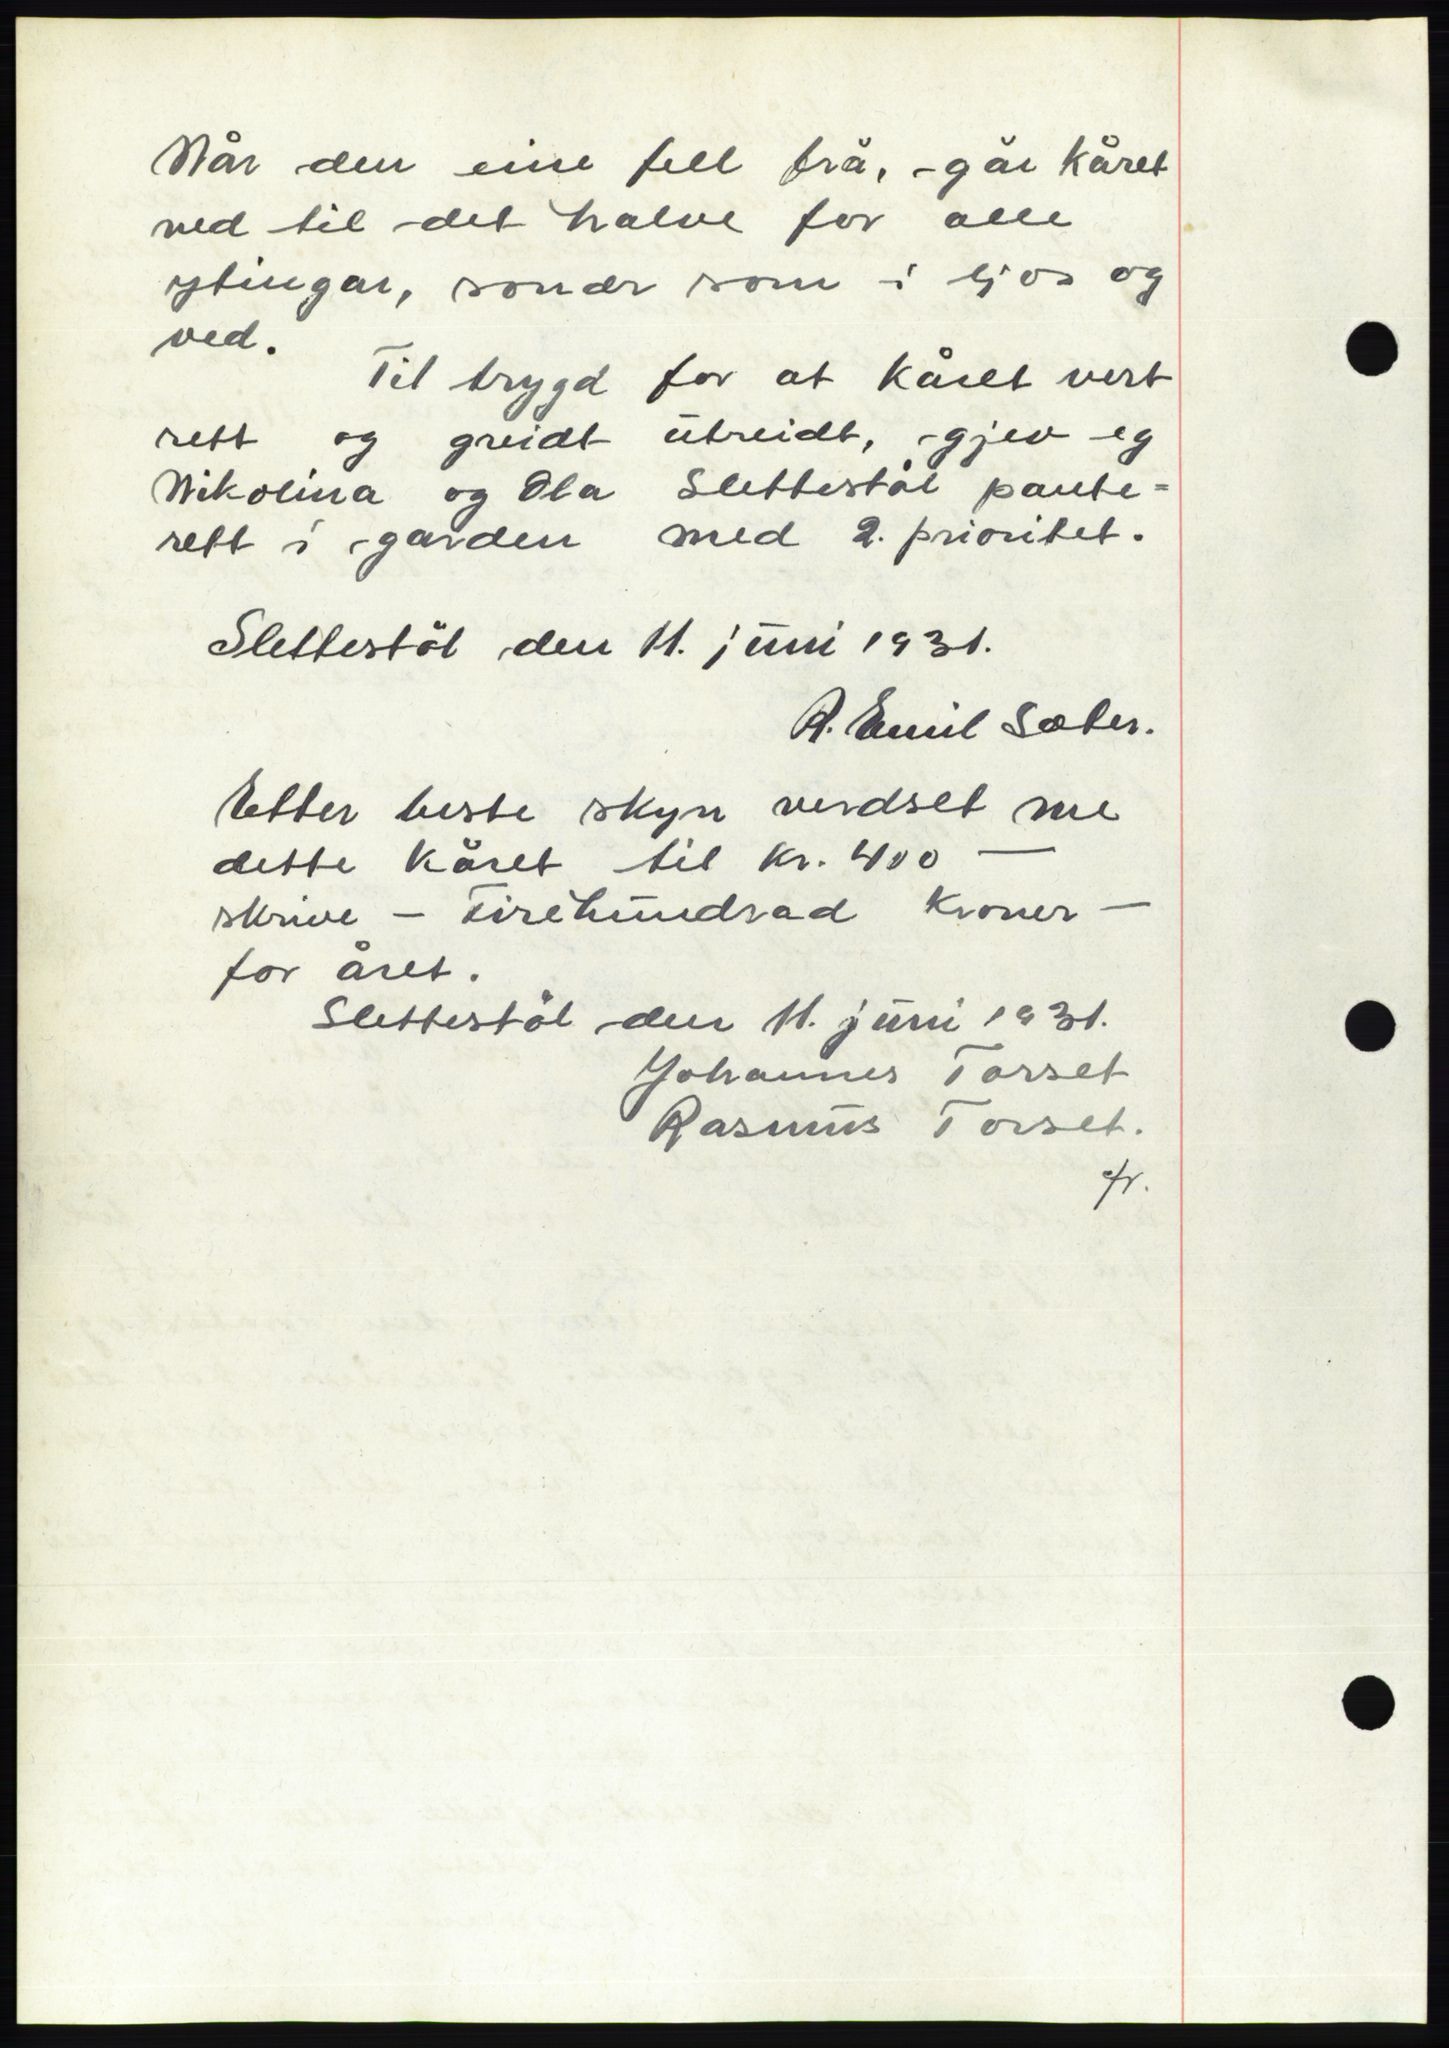 Når den eine fell frå, går kåret
ned til det halve for alle
ytingar, sonær som i ljos og
ved.
Til trygd for at kåret vert
rett og greidt utreidt, gjev eg
Nikolina og Ola Slettestøl pante=
rett i garden med 2. prioritet.
Slettestøl den 11. juni 1931.
A. Emil Sæter.
Etter beste skyn verdset me
dette kåret til kr. 400 —
skrive — Firehundrad kroner —
for året.
Slettestøl den 11. juni 1931.
Johannes Torset
Rasmus Torset.